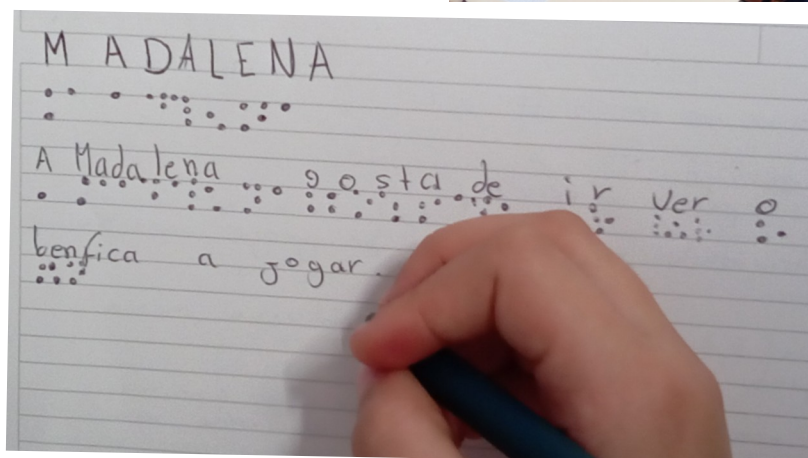 MADALENA
A Madalena gosta de ir ver o
benfica a jogar.